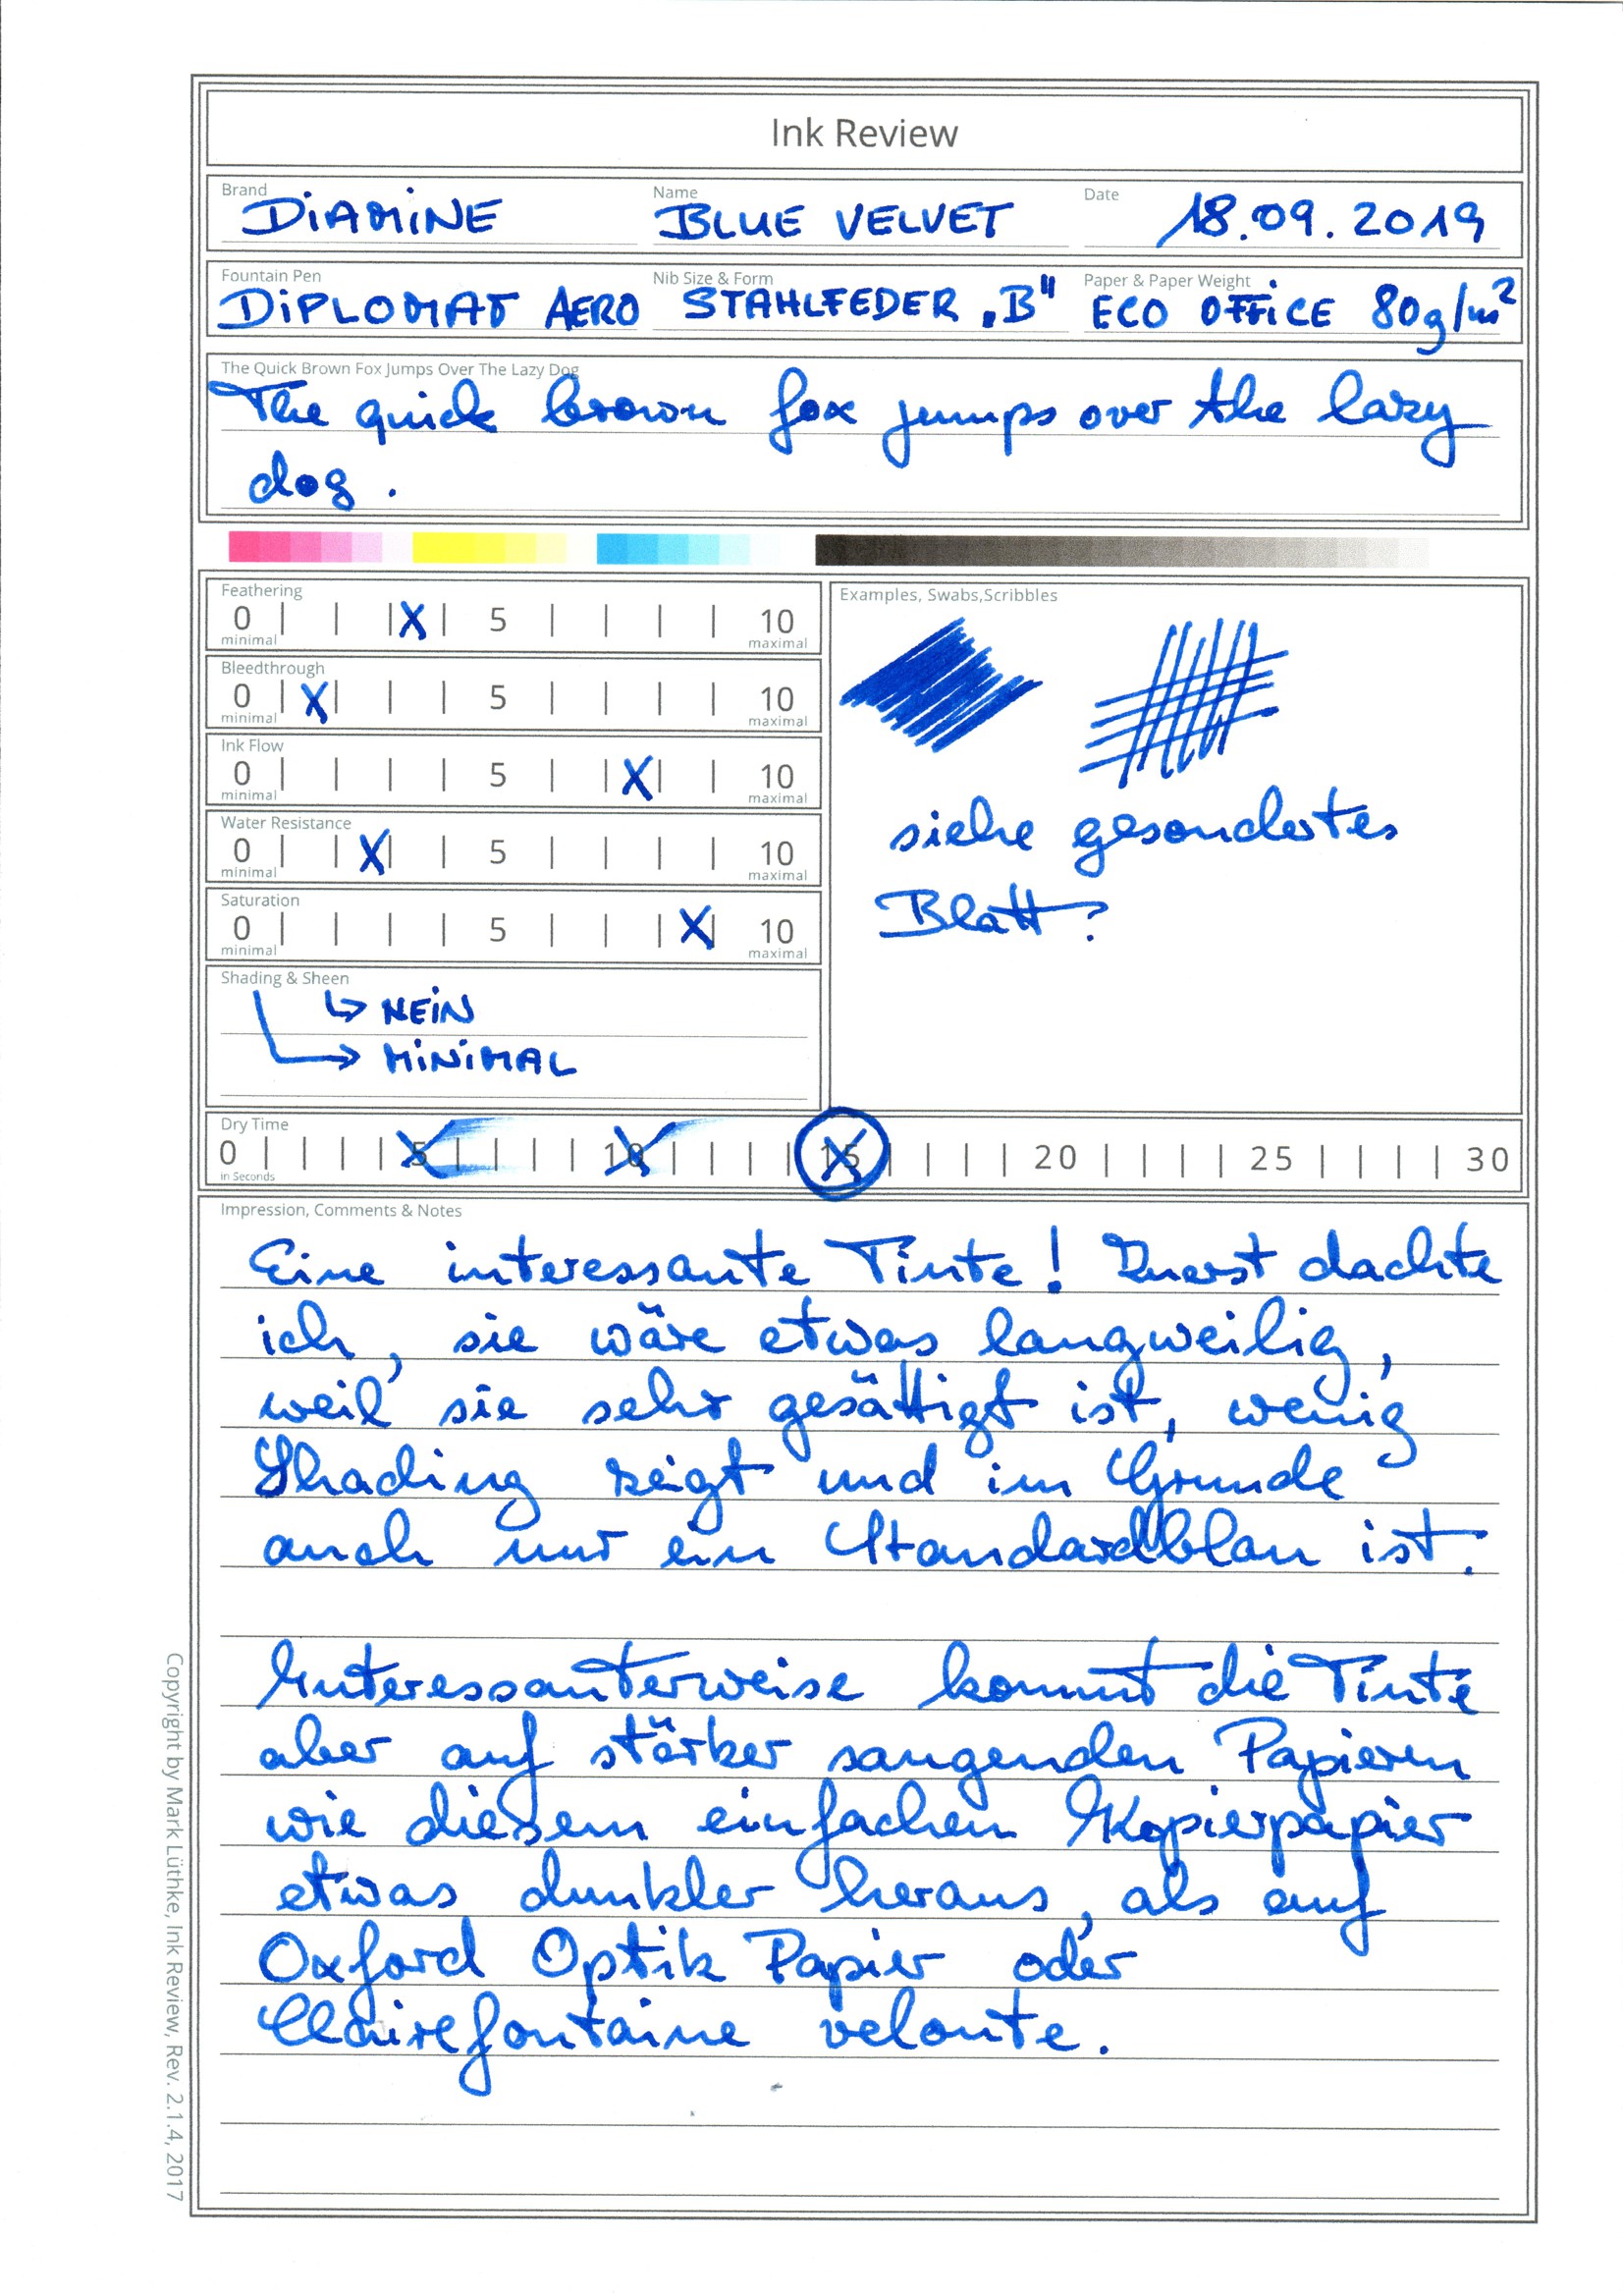 Ink Review
Brand Name Date
DiAMiNE BLUE VELVET 18.09.2019
Fountain Pen Nib Size & Form Paper & Paper Weight
DiPLOMAT AERO STAHLFEDER „B" ECO OFFiCE 80g/m²
The Quick Brown Fox Jumps Over The Lazy Dog
The quick brown fox jumps over the lazy
dog.
Feathering
0 | | |X| 5 | | | | 10
minimal maximal
Bleedthrough
0 |X| | | 5 | | | | 10
minimal maximal
Ink Flow
0 | | | | 5 | |X| | 10
minimal maximal
Water Resistance
0 | |X| | 5 | | | | 10
minimal maximal
Saturation
0 | | | | 5 | | |X| 10
minimal maximal
Shading & Sheen
↳ NEiN
→ MiNiMAL
Examples, Swabs,Scribbles
siehe gesondertes
Blatt?
Dry Time
0 | | | | 5 | | | | 10 | | | | 15 | | | | 20 | | | | 25 | | | | 30
in Seconds
Impression, Comments & Notes
Eine interessante Tinte! Zuerst dachte
ich, sie wäre etwas langweilig,
weil sie sehr gesättigt ist, wenig
Shading zeigt und im Grunde
auch nur ein Standardblau ist.
Interessanterweise kommt die Tinte
aber auf stärker saugenden Papieren
wie diesem einfachen Kopierpapier
etwas dunkler heraus, als auf
Oxford Optik Papier oder
Clairefontaine veloute.
Copyright by Mark Lüthke, Ink Review, Rev. 2.1.4, 2017